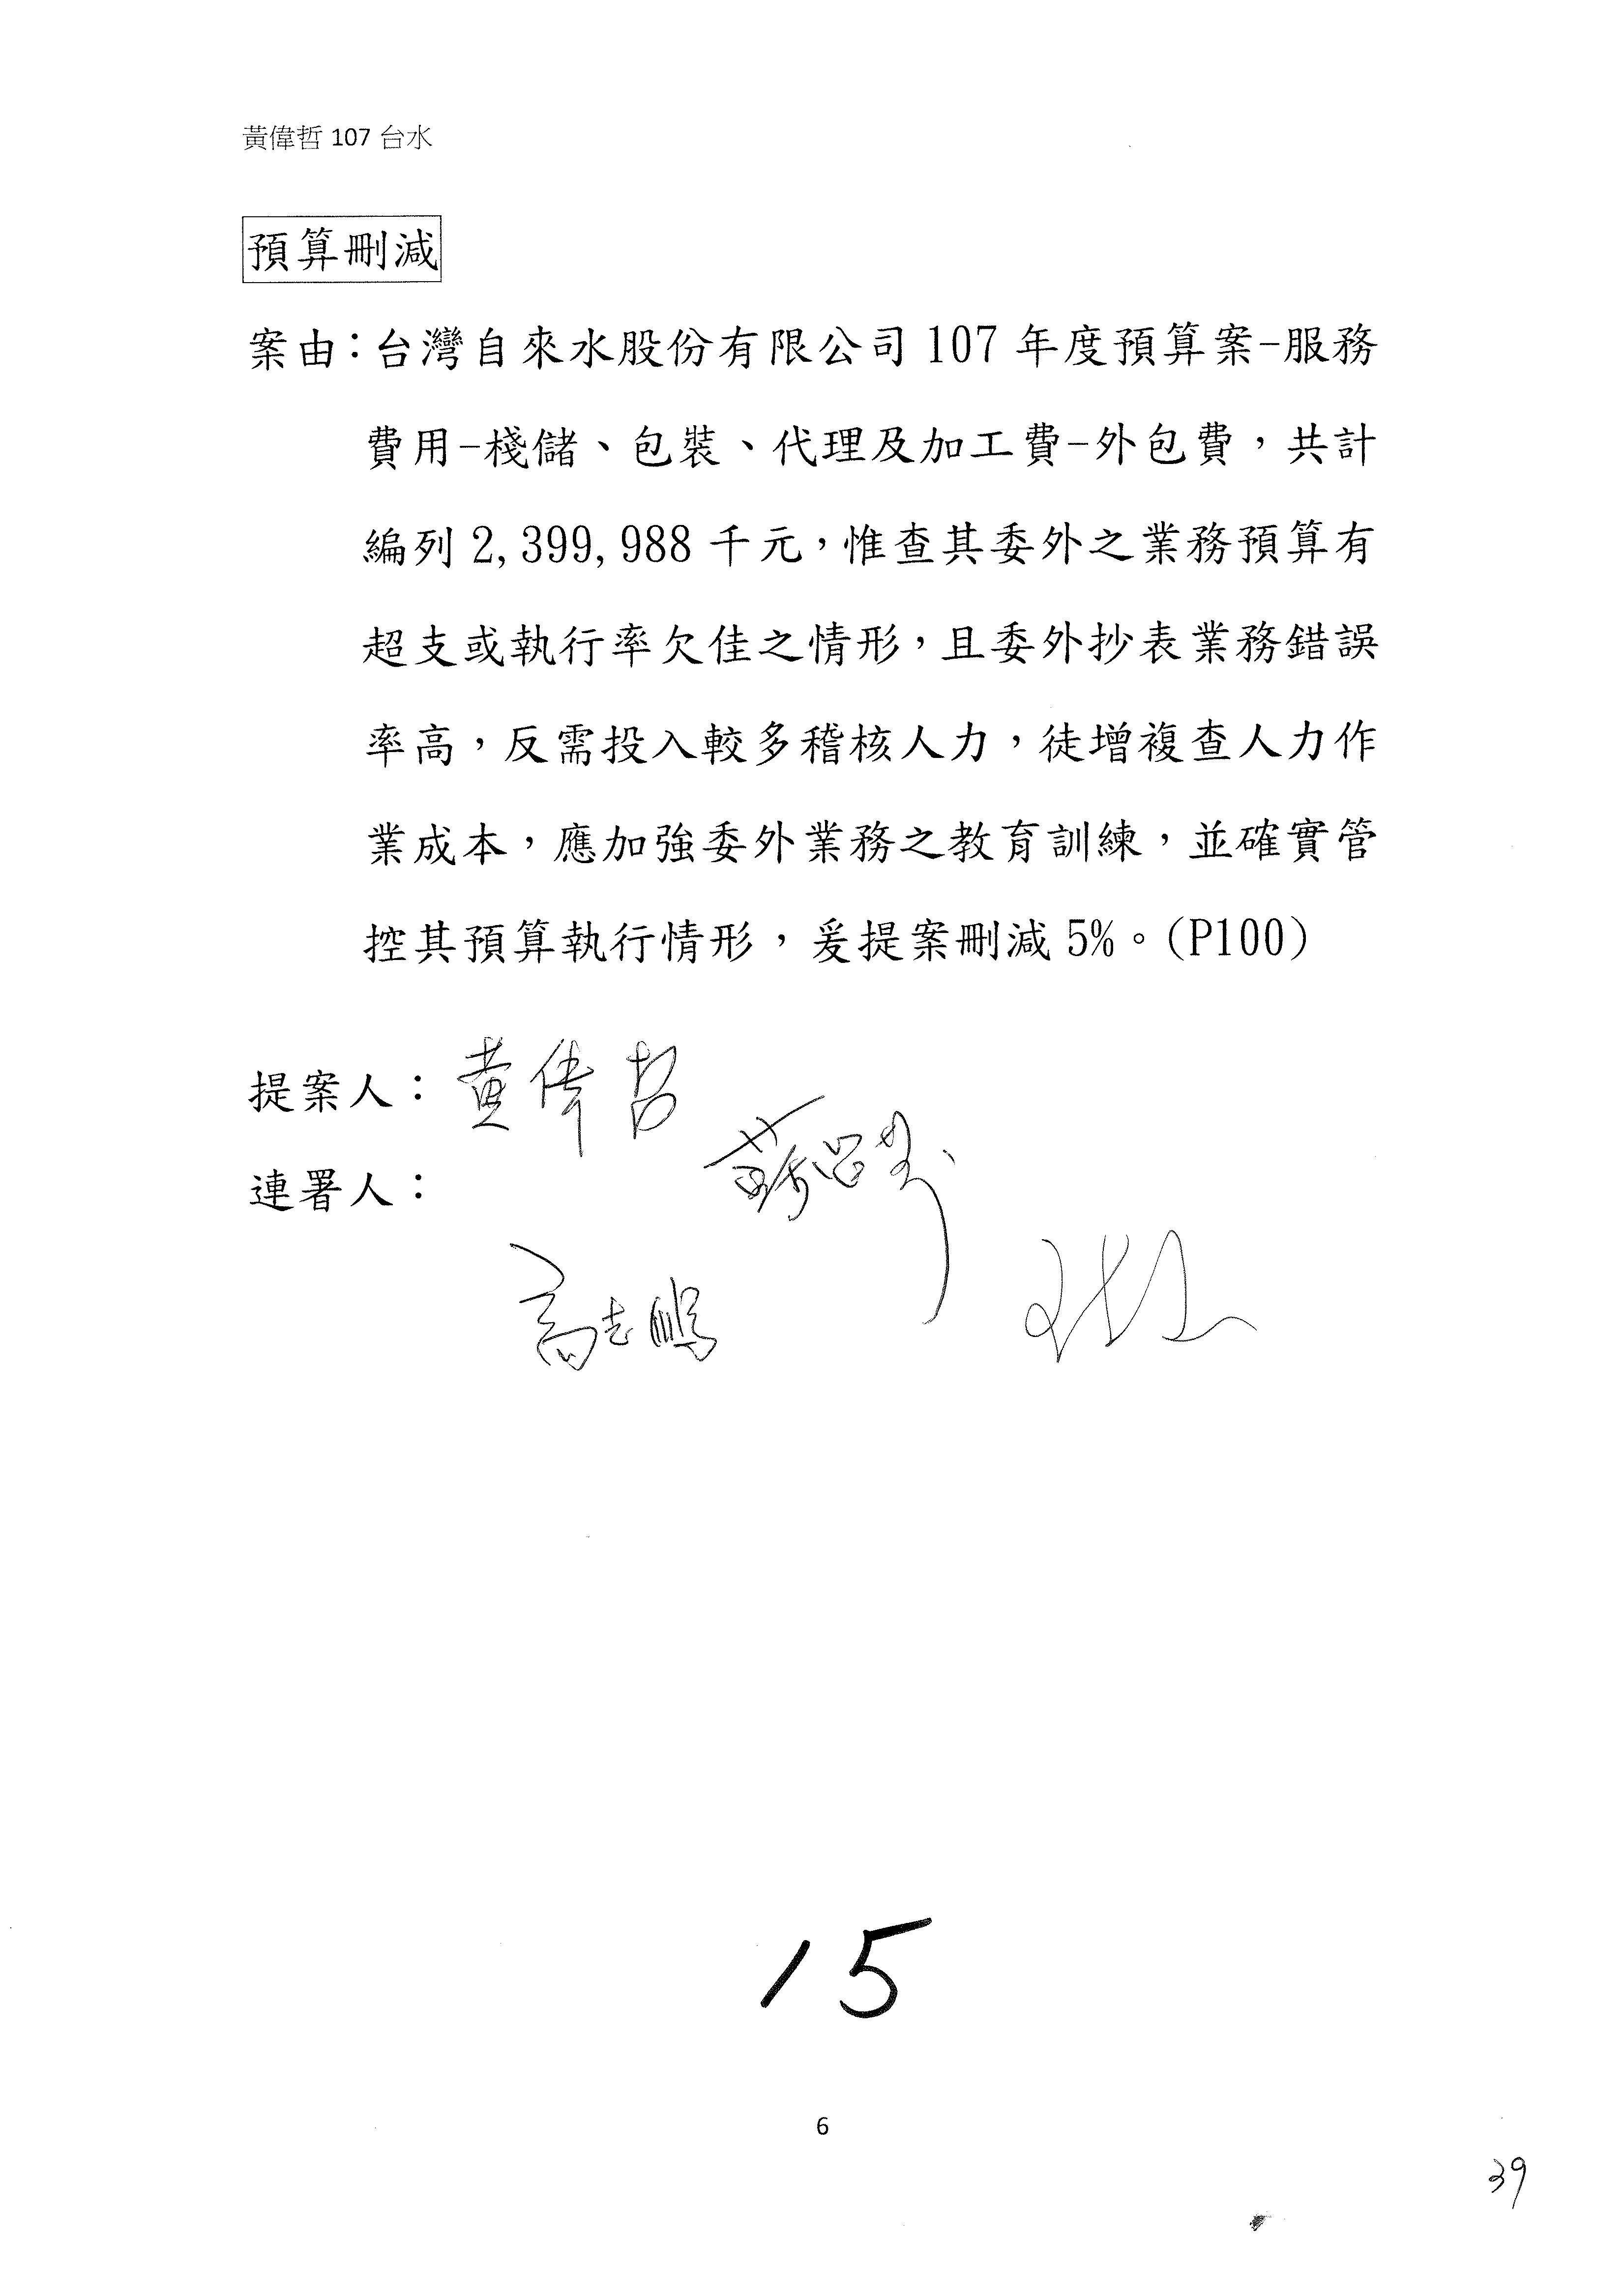 黃偉哲 107 台水
預算刪減
案由：台灣自來水股份有限公司 107 年度預算案-服務
費用-棧儲、包裝、代理及加工費-外包費，共計
編列 2,399,988 千元，惟查其委外之業務預算有
超支或執行率欠佳之情形，且委外抄表業務錯誤
率高，反需投入較多稽核人力，徒增複查人力作
業成本，應加強委外業務之教育訓練，並確實管
控其預算執行情形，爰提案刪減 5%。(P100)
提案人：黃偉哲
連署人：
高志鵬
15
6
39